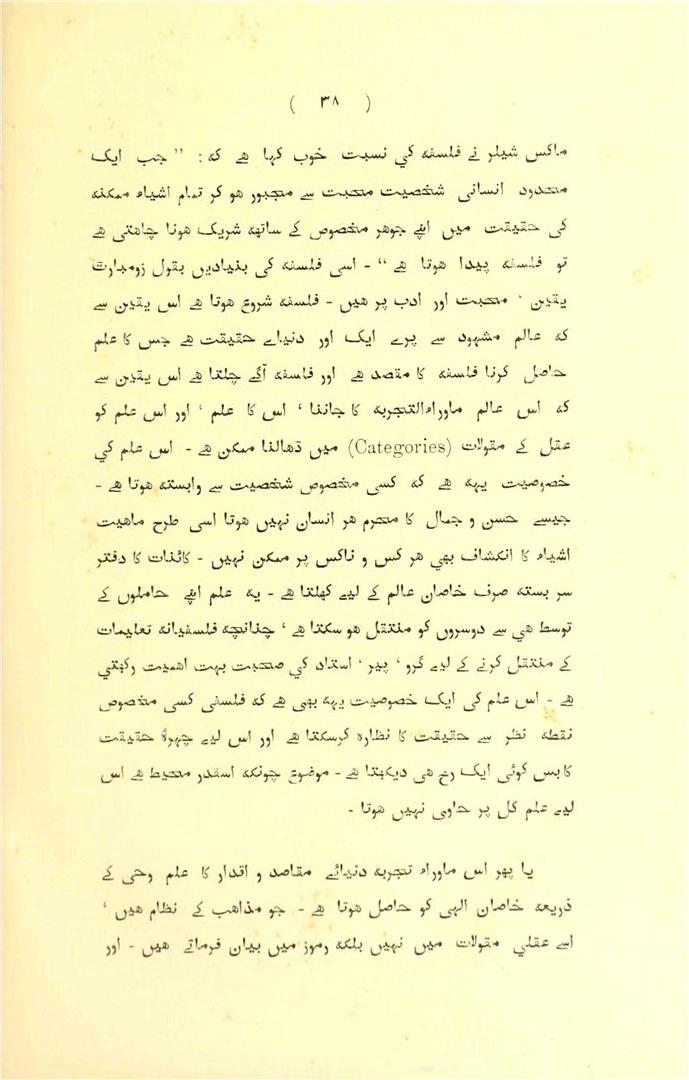 ( ٣٨ )
ماکس شیلر نے فلسفہ کي نسبت خوب کہا ھے کہ : ” جب ایک
محدود انسانی شخصیت محبت سے مجبور ھو کر تمام اشیاء ممکنہ
کی حقیقت میں اپنے جوھر مخصوص کے ساتھہ شریک ھونا چاھتی ھے
تو فلسفہ پیدا ھوتا ھے “ - اسی فلسفہ کی بنیادیں بقول زومبارٹ
یقین ، محبت اور ادب پر ھیں - فلسفہ شروع ھوتا ھے اس یقین سے
کہ عالم مشہود سے پرے ایک اور دنیاے حقیقت ھے جس کا علم
حاصل کرنا فلسفہ کا مقصد ھے اور فلسفہ آگے چلتا ھے اس یقین سے
کہ اس عالم ماوراءالتجربہ کا جاننا ، اس کا علم ، اور اس علم کو
عقل کے مقولات (Categories) میں ڈھالنا ممکن ھے - اس علم کي
خصوصیت یہہ ھے کہ کسی مخصوص شخصیت سے وابستہ ھوتا ھے -
جیسے حسن و جمال کا محرم ھر انسان نہیں ھوتا اسی طرح ماھیت
اشیاء کا انکشاف بھي ھر کس و ناکس پر ممکن نہیں - کائنات کا دفتر
سر بستہ صرف خاصان عالم کے لیے کھلتا ھے - یہ علم اپنے حاملوں کے
توسط ھي سے دوسروں کو منتقل ھو سکتا ھے ، چنانچہ فلسفیانہ تعلیمات
کے منتقل کرنے کے لیے گرو ، پیر ، استاد کي صحبت بہت اھمیت رکھتي
ھے - اس علم کی ایک خصوصیت یہہ بھی ھے کہ فلسفی کسی مخصوص
نقطہ نظر سے حقیقت کا نظارہ کرسکتا ھے اور اس لیے چہرۂ حقیقت
کا بس کوئی ایک رخ ھی دیکھتا ھے - موضوع چونکہ اسقدر محیط ھے اس
لیے علم کل پر حاوی نہیں ھوتا -
یا پھر اس ماوراء تجربہ دنیائے مقاصد و اقدار کا علم وحی کے
ذریعہ خاصان الہی کو حاصل ھوتا ھے - جو مذاھب کے نظام ھیں ،
اسے عقلي مقولات میں نہیں بلکہ رموز میں بیان فرماتے ھیں - اور